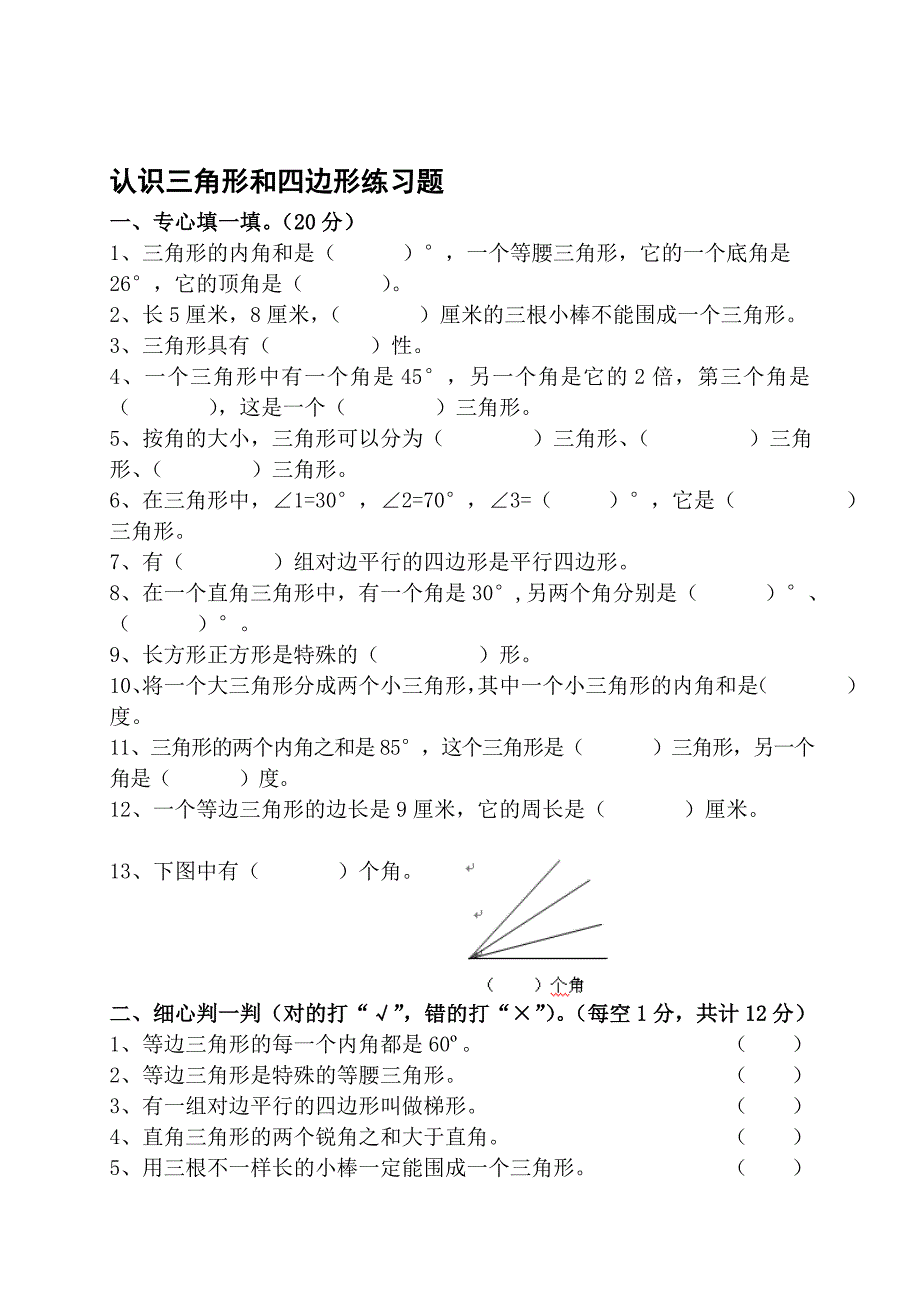 认识三角形和四边形练习题
一、专心填一填。（20分）
1、三角形的内角和是（　　　）°，一个等腰三角形，它的一个底角是
26°，它的顶角是（　　　）。
2、长5厘米，8厘米，（　　　）厘米的三根小棒不能围成一个三角形。
3、三角形具有（　　　）性。
4、一个三角形中有一个角是45°，另一个角是它的2倍，第三个角是
（　　　），这是一个（　　　）三角形。
5、按角的大小，三角形可以分为（　　　）三角形、（　　　）三角
形、（　　　）三角形。
6、在三角形中，∠1=30°，∠2=70°，∠3=（　　　）°，它是（　　　）
三角形。
7、有（　　　）组对边平行的四边形是平行四边形。
8、在一个直角三角形中，有一个角是30°,另两个角分别是（　　　）°、
（　　　）°。
9、长方形正方形是特殊的（　　　）形。
10、将一个大三角形分成两个小三角形，其中一个小三角形的内角和是（　　　）
度。
11、三角形的两个内角之和是85°，这个三角形是（　　　）三角形，另一个
角是（　　　）度。
12、一个等边三角形的边长是9厘米，它的周长是（　　　）厘米。
13、下图中有（　　　）个角。
（　　）个角
二、细心判一判（对的打“√”，错的打“×”）。（每空1分，共计12分）
1、等边三角形的每一个内角都是60º。（　　）
2、等边三角形是特殊的等腰三角形。（　　）
3、有一组对边平行的四边形叫做梯形。（　　）
4、直角三角形的两个锐角之和大于直角。（　　）
5、用三根不一样长的小棒一定能围成一个三角形。（　　）